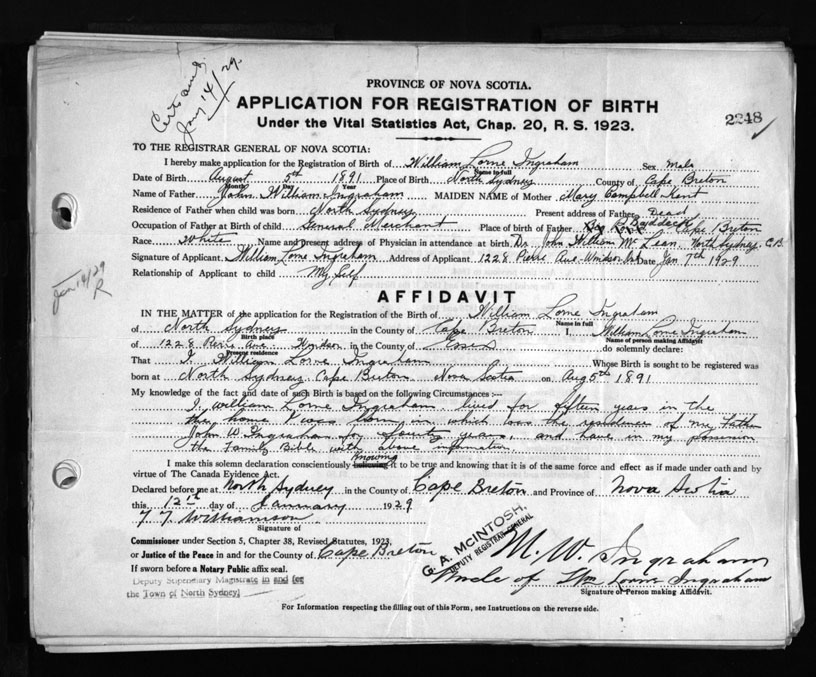 Certs and
Jan 14/29.
PROVINCE OF NOVA SCOTIA.
APPLICATION FOR REGISTRATION OF BIRTH
2248
Under the Vital Statistics Act, Chap. 20, R. S. 1923.
TO THE REGISTRAR GENERAL OF NOVA SCOTIA:
I hereby make application for the Registration of Birth of William Lorne Ingraham Sex Male
Name in full
Date of Birth August 5th 1891 Place of Birth North Sydney County of Cape Breton
Month Day Year
Name of Father John William Ingraham MAIDEN NAME of Mother Mary Campbell Kent
Residence of Father when child was born North Sydney Present address of Father Dead
Occupation of Father at Birth of child General Merchant Place of birth of Father Baddeck Cape Breton
Race White Name and present address of Physician in attendance at birth Dr. John William McLean. North Sydney C.B.
Signature of Applicant William Lorne Ingraham Address of Applicant 1228 Pierre Ave. Windsor Ont Date Jan 7th 1929
Relationship of Applicant to child My Self
Jan 14/29
R
AFFIDAVIT
IN THE MATTER of the application for the Registration of the Birth of William Lorne Ingraham
Name in full
of North Sydney in the County of Cape Breton I, William Lorne Ingraham
Birth place
Name of person making Affidavit
of 1228 Pierre Ave. Windsor in the County of Essex do solemnly declare:
Present residence
That I. William Lorne Ingraham Whose Birth is sought to be registered was
born at North Sydney Cape Breton Nova Scotia on Aug 5th 1891
My knowledge of the fact and date of such Birth is based on the following Circumstances :—
I, William Lorne Ingraham, lived for fifteen years in the
the home I was born in which was the residence of my Father
John W. Ingraham for years, and have in my possession
the Family Bible with above information.
knowing
I make this solemn declaration conscientiously believing it to be true and knowing that it is of the same force and effect as if made under oath and by
virtue of The Canada Evidence Act.
Declared before me at North Sydney in the County of Cape Breton and Province of Nova Scotia
this 12th day of January 1929
Williamson
Signature of
Commissioner under Section 5, Chapter 38, Revised Statutes, 1923,
or Justice of the Peace in and for the County of Cape Breton
If sworn before a Notary Public affix seal.
Deputy Stipendiary Magistrate in and for
the Town of North Sydney
G. A. McINTOSH,
DEPUTY REGISTRAR GENERAL
M. W. Ingraham
Uncle of Wm Lorne Ingraham
Signature of Person making Affidavit.
For Information respecting the filling out of this Form, see Instructions on the reverse side.